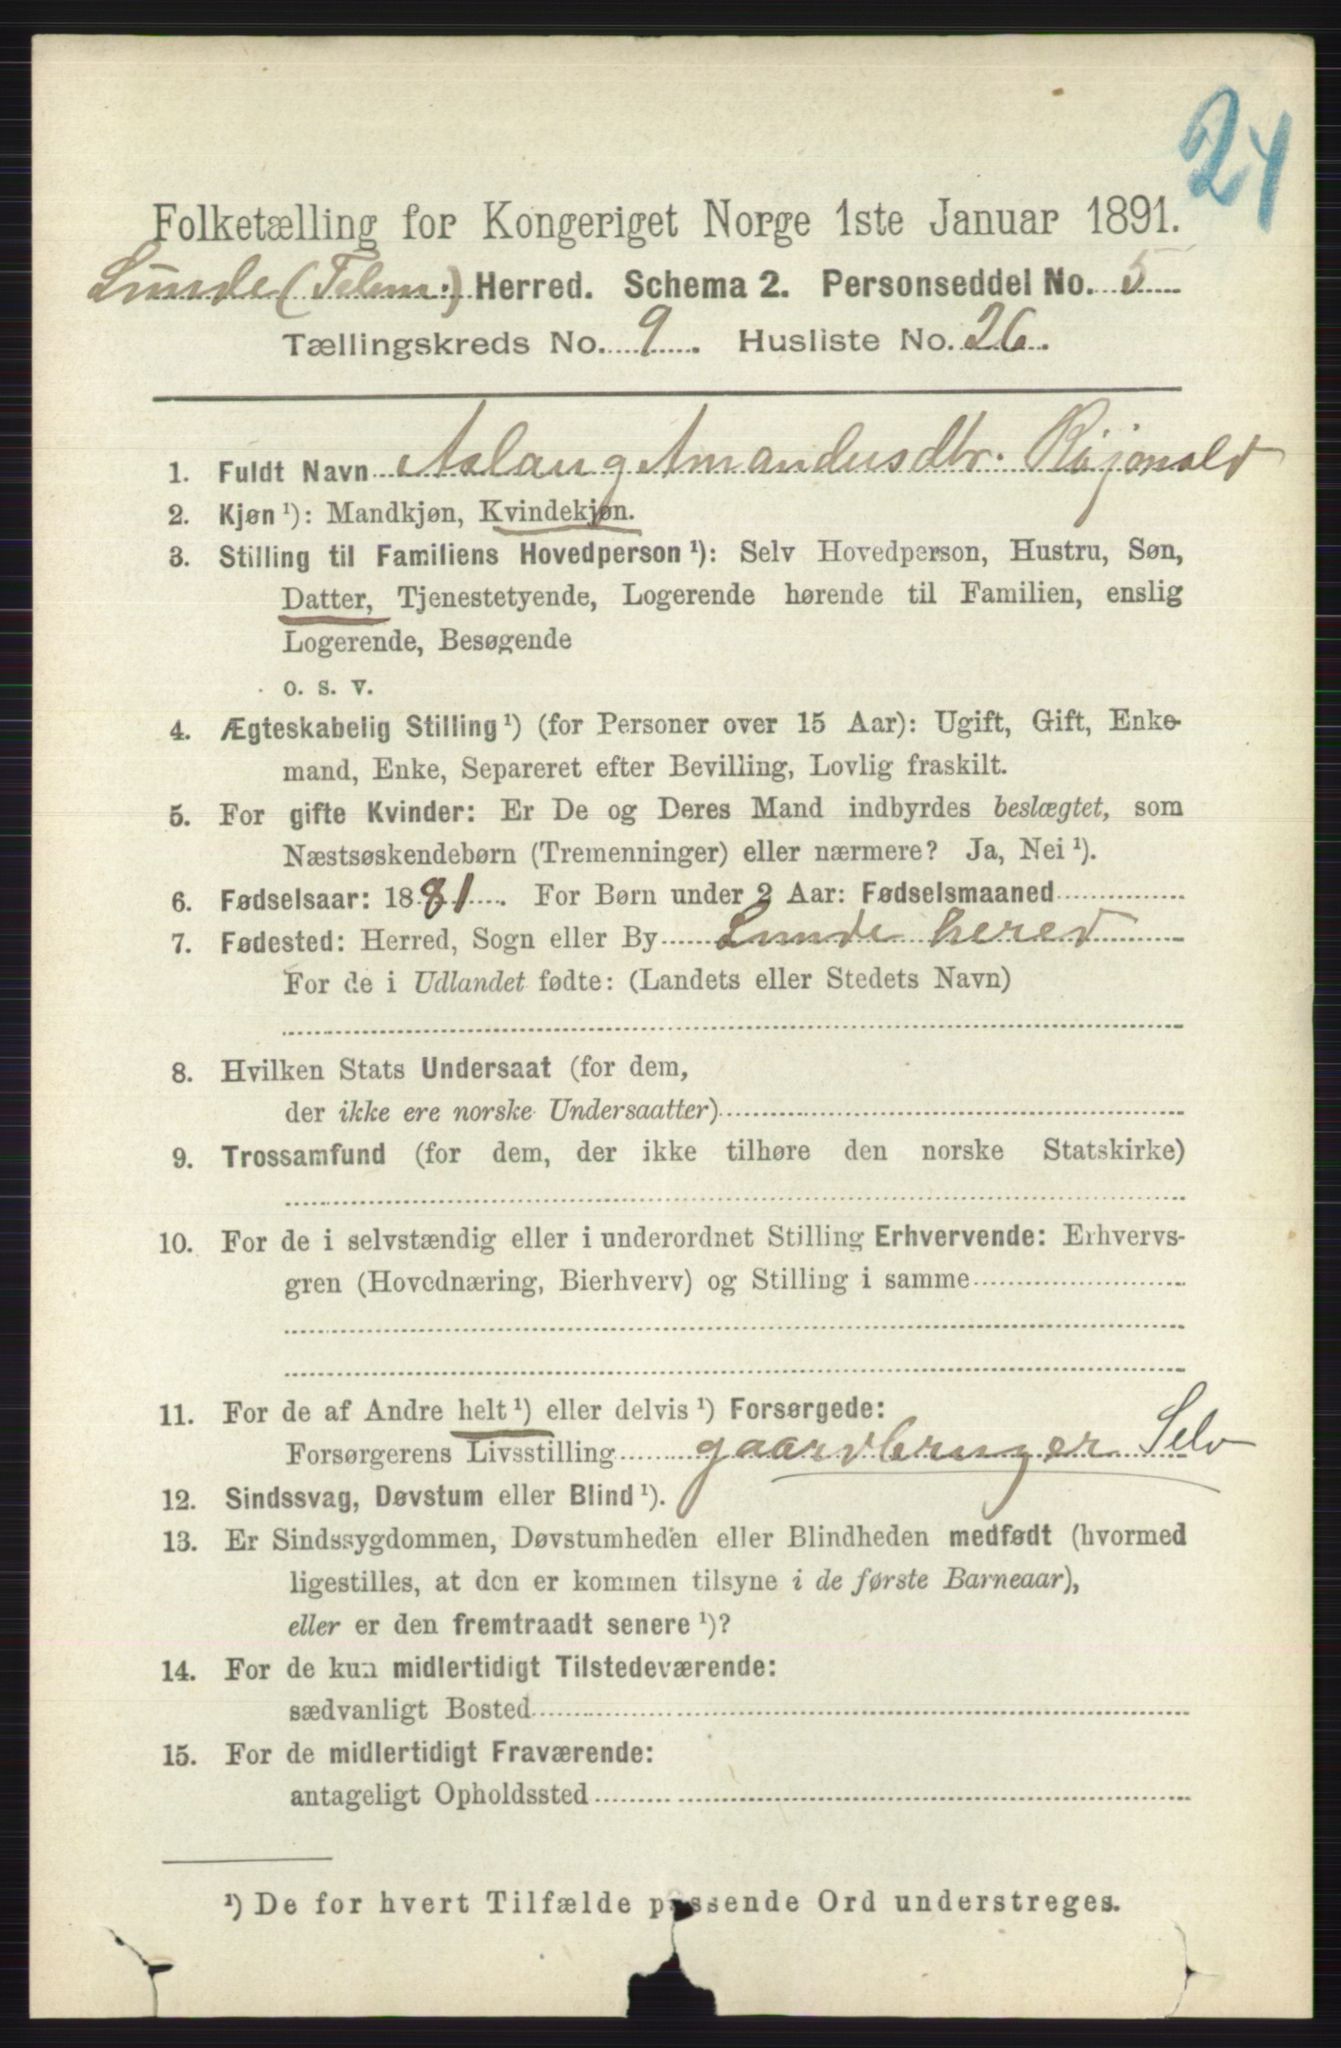 24
Folketælling for Kongeriget Norge 1ste Januar 1891.
Lunde (Telem.) Herred. Schema 2. Personseddel No. 5
Tællingskreds No. 9. Husliste No. 26.
1. Fuldt Navn Aslaug Amandusdtr.
2. Kjøn ¹): Mandkjøn, Kvindekjøn.
3. Stilling til Familiens Hovedperson ¹): Selv Hovedperson, Hustru, Søn,
Datter, Tjenestetyende, Logerende hørende til Familien, enslig
Logerende, Besøgende
o. s. v.
4. Ægteskabelig Stilling ¹) (for Personer over 15 Aar): Ugift, Gift, Enke-
mand, Enke, Separeret efter Bevilling, Lovlig fraskilt.
5. For gifte Kvinder: Er De og Deres Mand indbyrdes beslægtet, som
Næstsøskendebørn (Tremenninger) eller nærmere? Ja, Nei ¹).
6. Fødselsaar: 1881. For Børn under 2 Aar: Fødselsmaaned
7. Fødested: Herred, Sogn eller By Lunde hered
For de i Udlandet fødte: (Landets eller Stedets Navn)
8. Hvilken Stats Undersaat (for dem,
der ikke ere norske Undersaatter)
9. Trossamfund (for dem, der ikke tilhøre den norske Statskirke)
10. For de i selvstændig eller i underordnet Stilling Erhvervende: Erhvervs-
gren (Hovednæring, Bierhverv) og Stilling i samme
11. For de af Andre helt ¹) eller delvis ¹) Forsørgede:
Forsørgerens Livsstilling gaardbruger Selv
12. Sindssvag, Døvstum eller Blind ¹).
13. Er Sindssygdommen, Døvstumheden eller Blindheden medfødt (hvormed
ligestilles, at den er kommen tilsyne i de første Barneaar),
eller er den fremtraadt senere ¹)?
14. For de kun midlertidigt Tilstedeværende:
sædvanligt Bosted
15. For de midlertidigt Fraværende:
antageligt Opholdssted
¹) De for hvert Tilfælde passende Ord understreges.